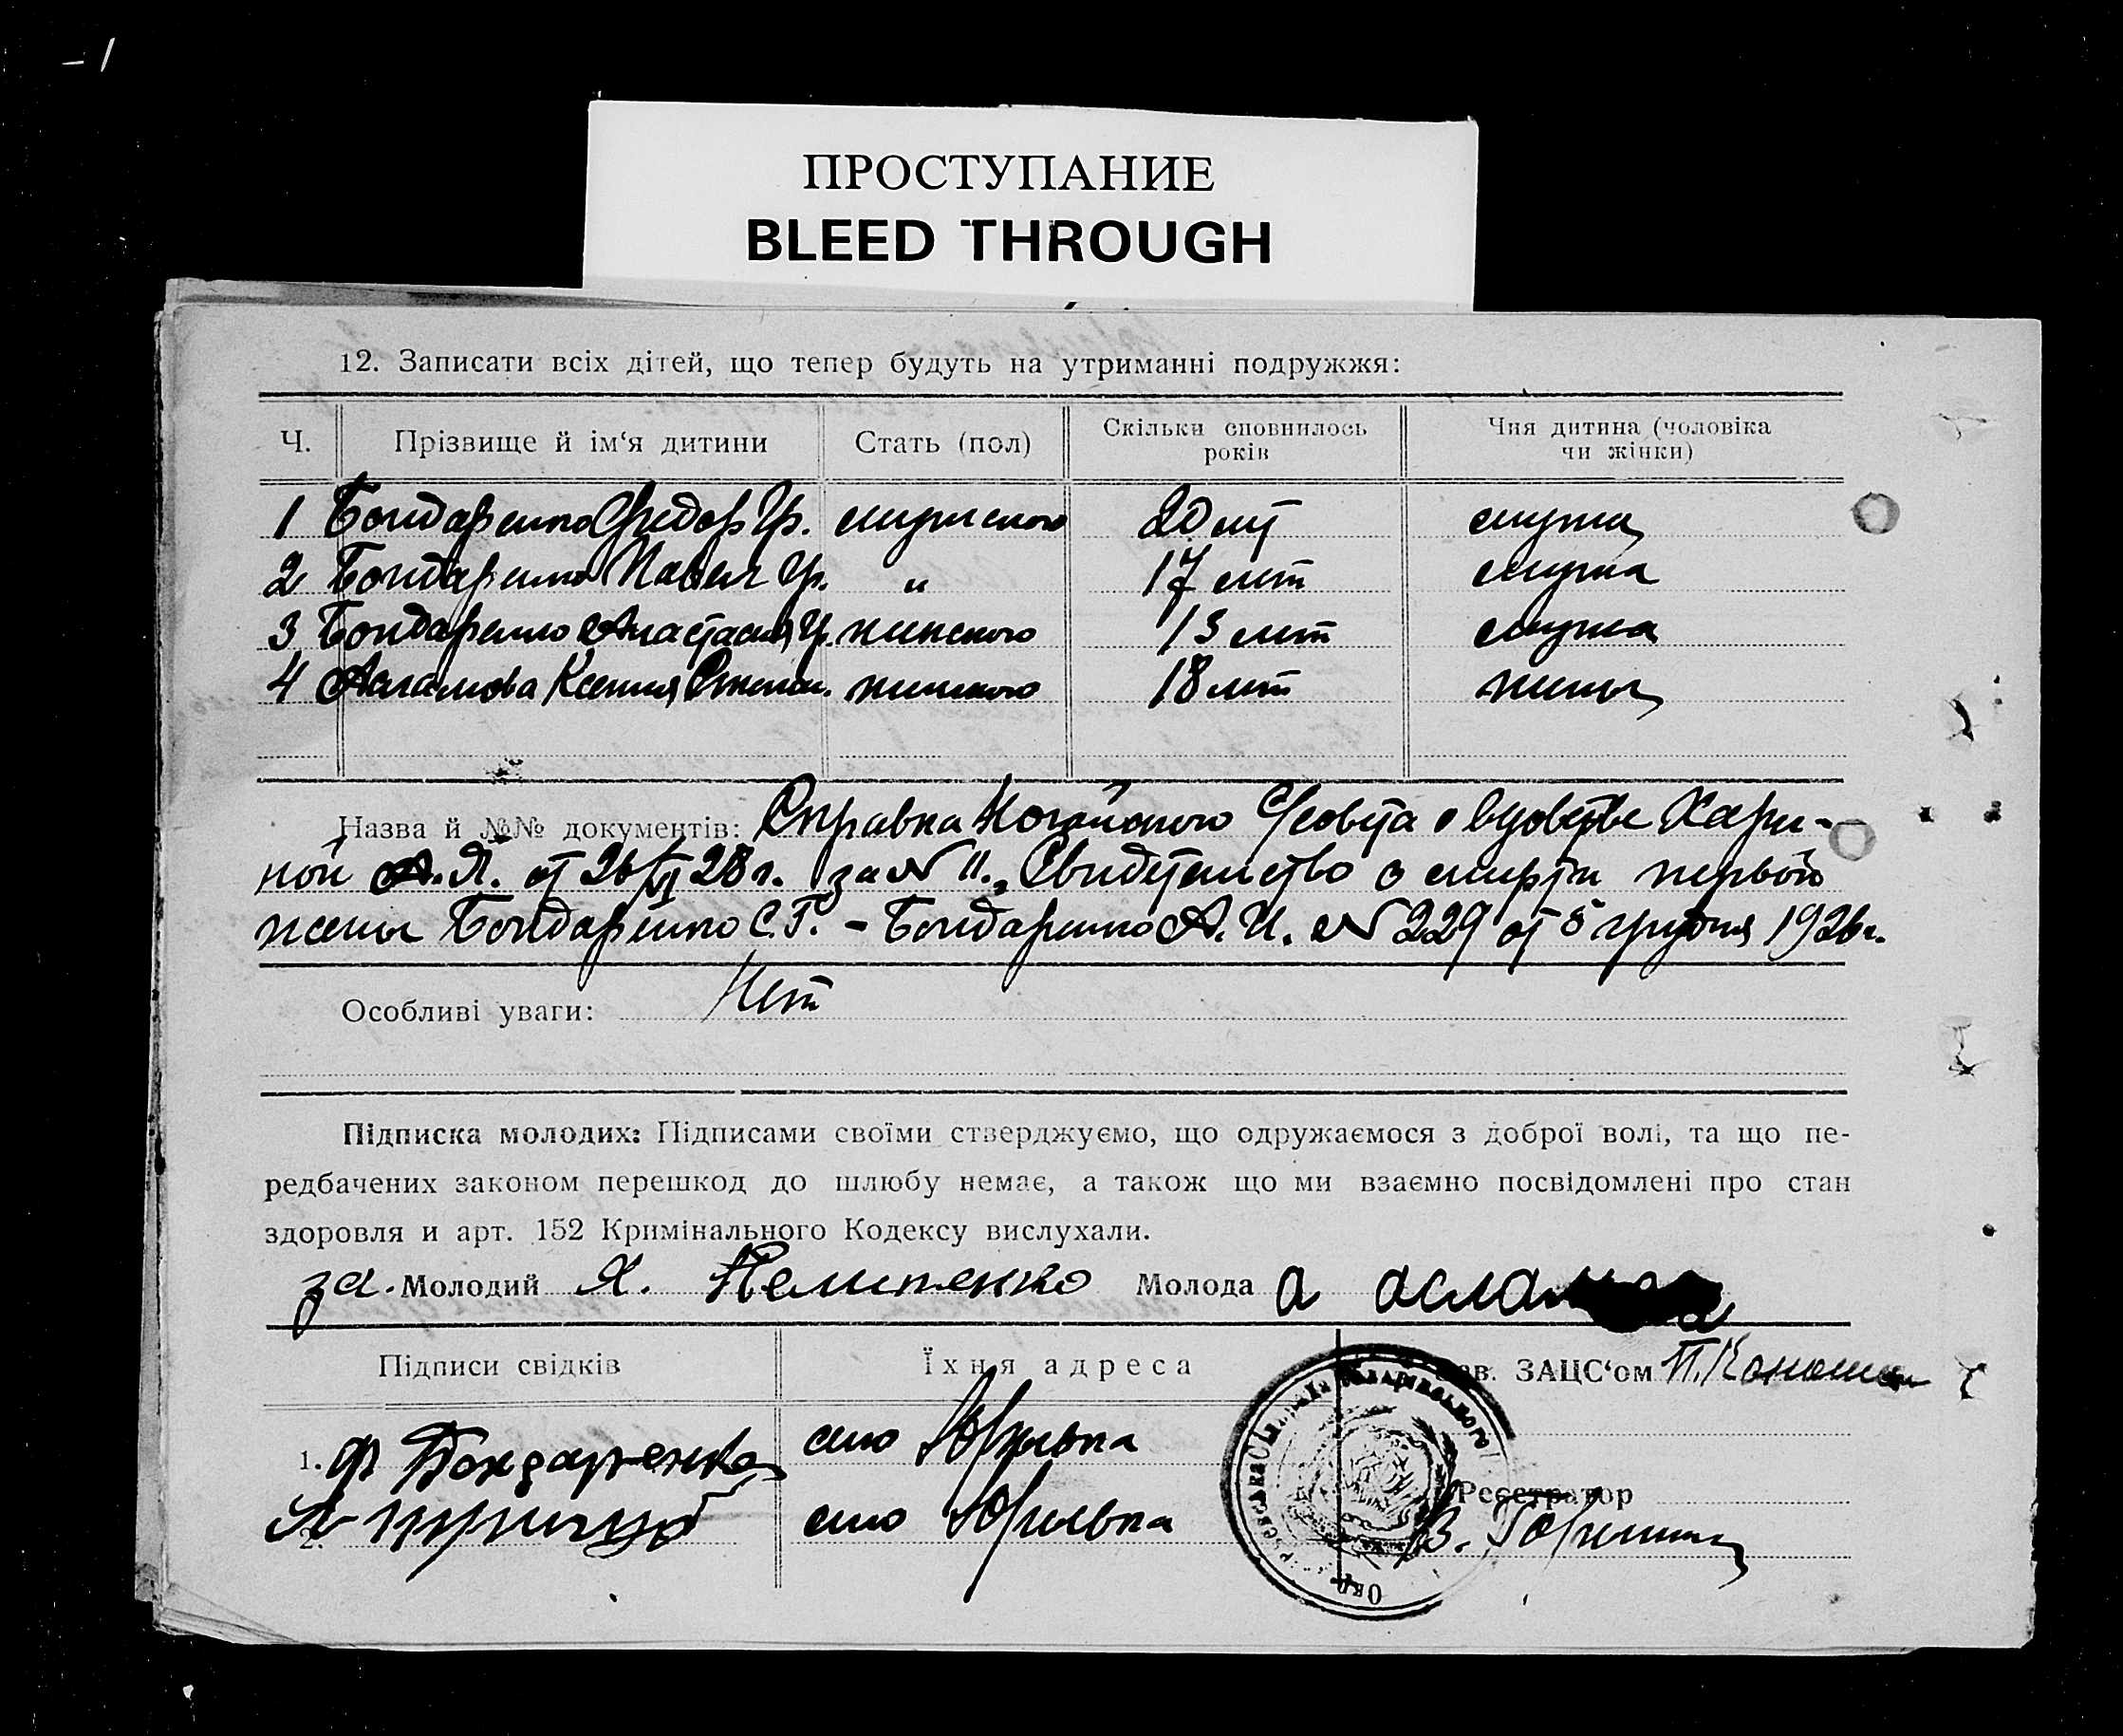 – 1
ПРОСТУПАНИЕ
BLEED THROUGH
12. Записати всіх дітей, що тепер будуть на утриманні подружжя:
Ч. Прізвище й ім‘я дитини Стать (пол) Скільки сповнилось років Чия дитина (чоловіка чи жінки)
1 Бондаренко Федор Гр. мужского 20 лет мужа
2 Бондаренко Павел Гр. " 17 лет мужа
3 Бондаренко Анастасия Гр. женского 13 лет мужа
4 Асламова Ксения женского 18 лет жены
Назва й №№ документів: Справка Ногайского С/совета о вдовстве Хари-
ной А. Я. от 26/VI 28 г. за N 11. Свидетельство о смерти первой
жены Бондаренко С. Г. – Бондаренко А. И. N 229 от 5 грудня 1926 г.
Особливі уваги: Нет
Підписка молодих: Підписами своїми стверджуємо, що одружаємося з доброї волі, та що пе-
редбачених законом перешкод до шлюбу немає, а також що ми взаємно посвідомлені про стан
здоровля и арт. 152 Кримінального Кодексу вислухали.
за. Молодий Я. Молода а
Підписи свідків Їхня адреса Зав. ЗАЦС‘ом
1. Ф Бондаренко село Юрьевка
2. село Юрьевка
Реєстратор
В.